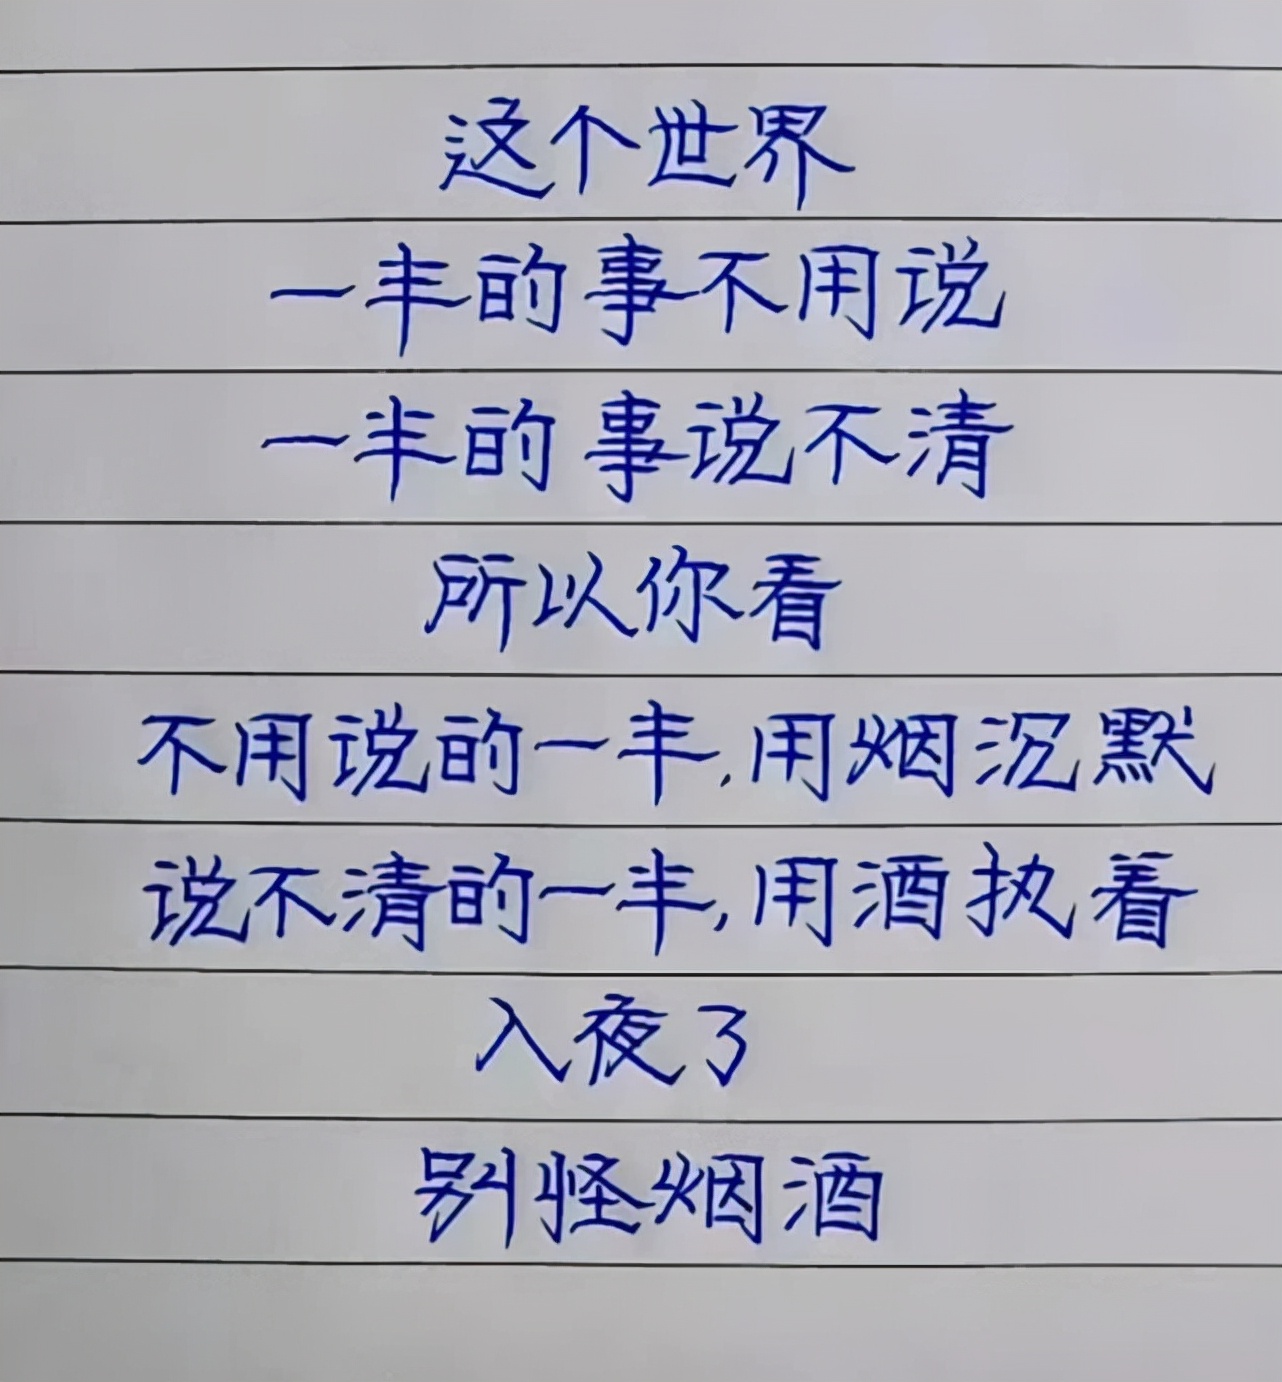 这个世界
一半的事不用说
一半的事说不清
所以你看
不用说的一半,用烟沉默
说不清的一半,用酒执着
入夜了
别怪烟酒